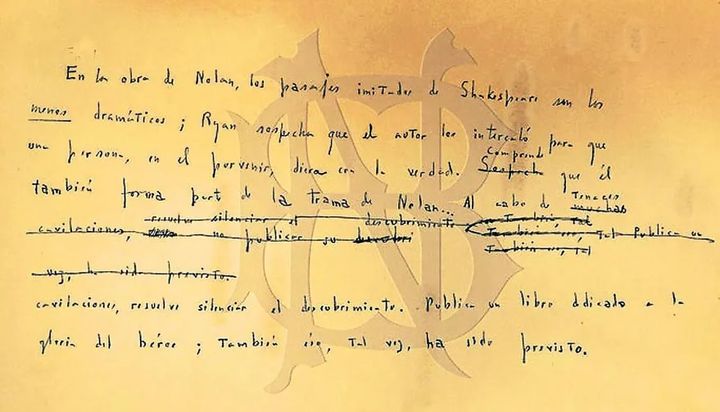 En la obra de Nolan, los pasajes imitados de Shakespeare son los
menos dramáticos; Ryan sospecha que el autor los intercaló para que
una persona, en el porvenir, diera con la verdad. Sospecha Comprende que él
también forma part de la trama de Nolan... Al cabo de muchas Tenaces
cavilaciones, resuelve silenciar el descubrimiento no publicar su También eso, tal Publica un
También eso, tal
También eso, tal
vez, ha sido previsto.
cavilaciones, resuelve silenciar el descubrimiento. Publica un libro ddicado a la
gloria del héroe; también eso, tal vez, ha sido previsto.